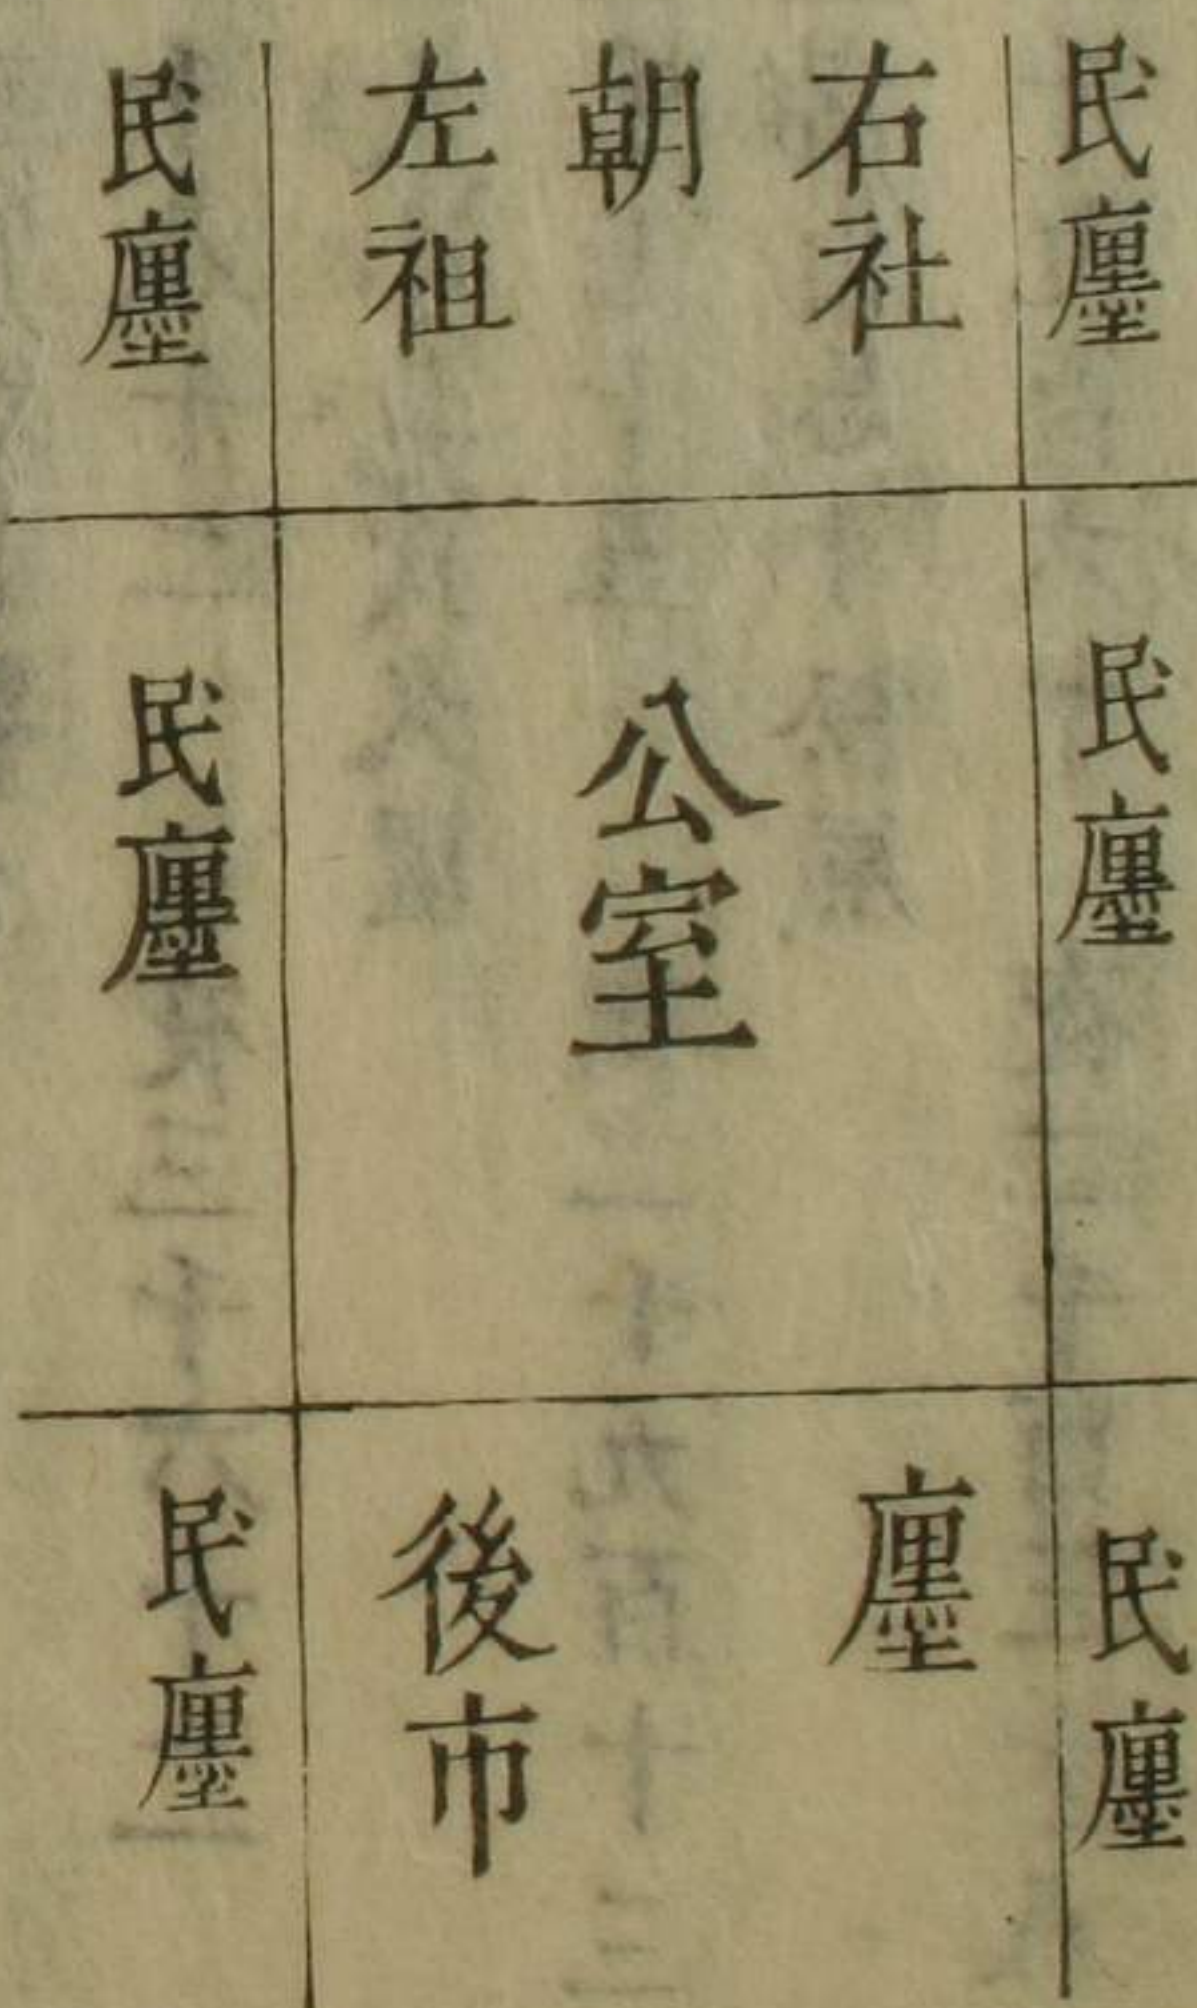 民廛
右社
朝
左祖
民廛
民廛
公室
民廛
民廛
廛
後市
民廛